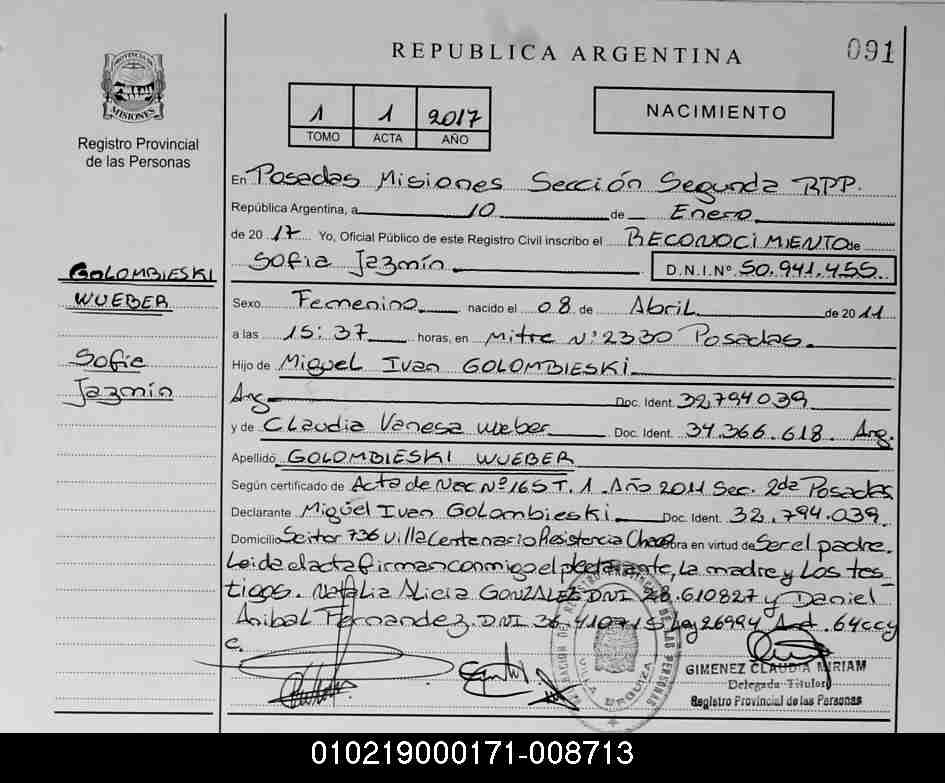 REPUBLICA ARGENTINA
091
PROVINCIA DE
MISIONES
Registro Provincial
de las Personas
1 1 2017
TOMO ACTA AÑO
NACIMIENTO
En Posadas Misiones Sección Segunda RPP.
República Argentina, a 10 de Enero
de 2017 Yo, Oficial Público de este Registro Civil inscribo el RECONOCIMIENTO de
Sofia Jazmín D.N.I.Nº 50.941.455
GOLOMBIESKI
WUEBER
Sofie
Jazmín
Sexo Femenino nacido el 08 de Abril de 2011
a las 15:37 horas, en Mitre Nº2330 Posadas.
Hijo de Miguel Ivan GOLOMBIESKI
Arg Doc. Ident. 32.794.039
y de Claudia Vanesa Weber Doc. Ident. 34.366.618. Arg.
Apellido GOLOMBIESKI WUEBER
Según certificado de Acta de Nac Nº165 T.1. Año 2011 Sec. 2da Posadas
Declarante Miguel Ivan Golombieski Doc. Ident. 32.794.039.
Domicilio 736 Villa Centenario Resistencia Chaco obra en virtud de Ser el padre.
Leida el acta firman conmigo el declarante, la madre y los tes-
tigos. Natalia Alicia GONZALEZ DNI 28.610827 y Daniel
Anibal Fernandez. DNI 36.410715 Ley 26994 Art. 64ccy
c.
VILLA URQUIZA
GIMENEZ CLAUDIA MIRIAM
Delegada Titular
Registro Provincial de las Personas
010219000171-008713